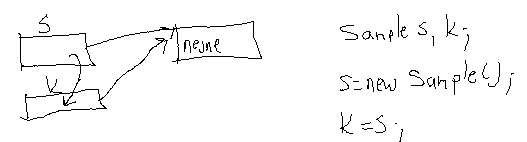 S
nesne
K
Sample s, k;
s=new Sample();
k=s;